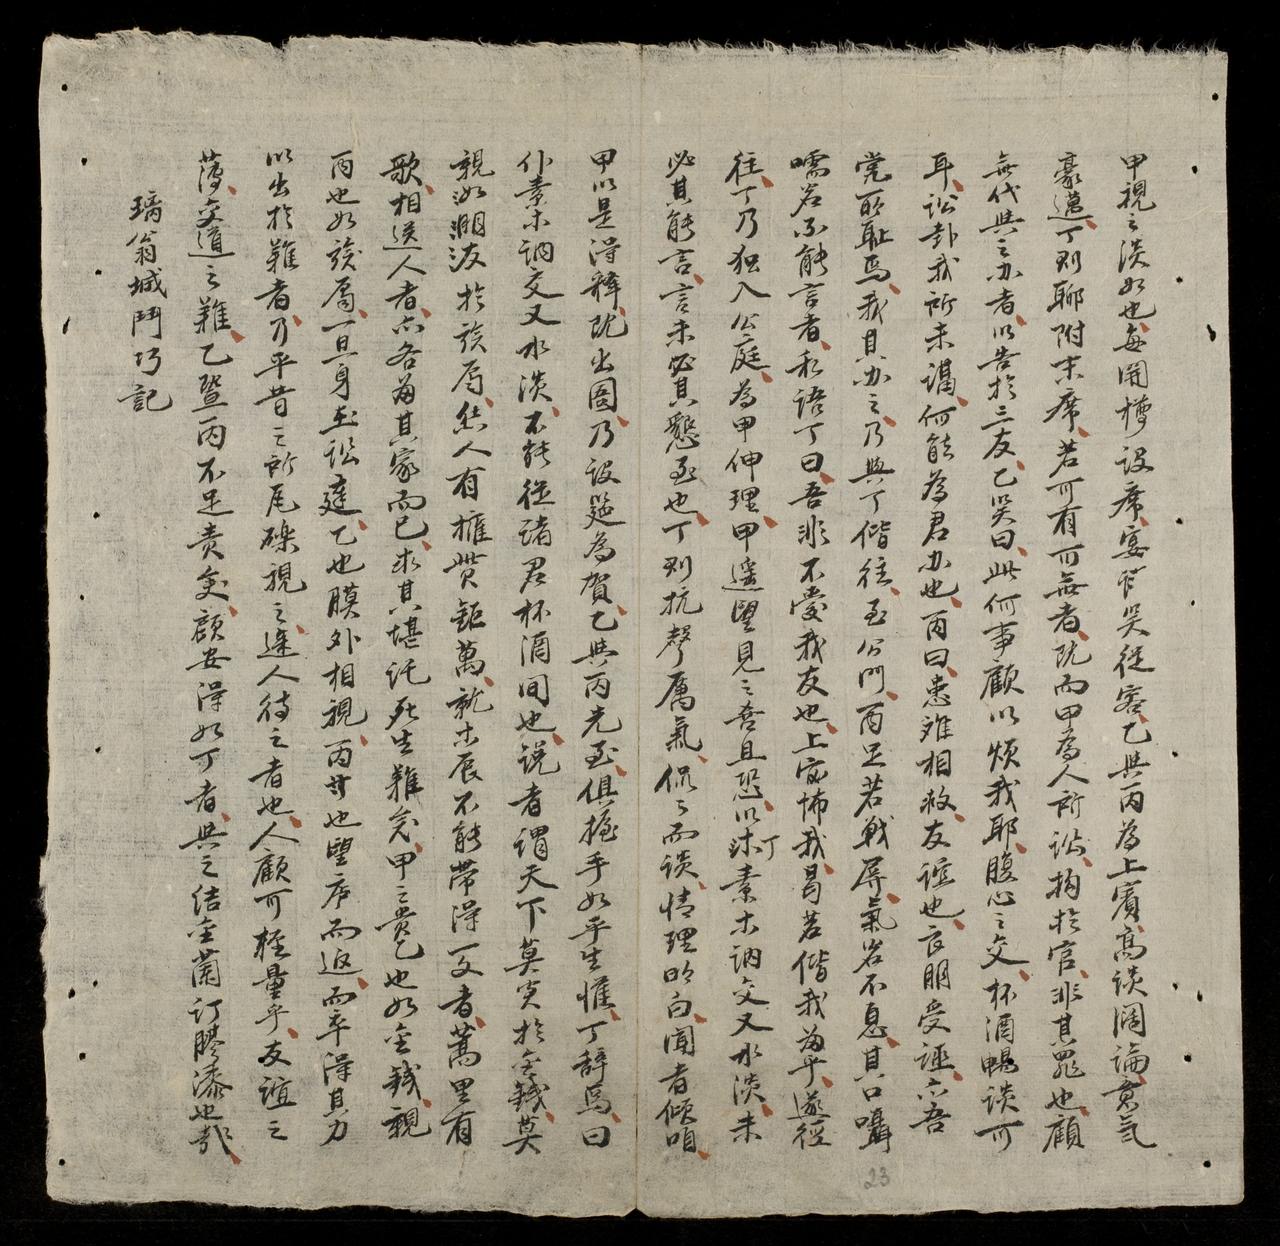 甲視之淡如也每開樽設席宴笮笑従容乙与丙為上賓高談濶論意气
豪邁丁則聊附末席若可有可無者既而甲為人所訟拘於官非其罪也顧
無代与之办者以告於三友乙笑曰此何事顧以煩我耶腹心之交杯酒暢談可
耳訟卦我所未講何能為君办也丙曰患难相救友誼也良朋受誣亦吾
党所恥焉我其办之乃与丁偕往至公門丙足若戦屏氣若不息其口囁
嚅若不能言者私語丁曰吾非不愛我友也上官怖我曷若偕我為乎遂径
往丁乃独入公庭為甲伸理甲遥望見之吝且恐以丁味素木訥交又水淡未
必其能言言未必其懇至也丁則抗聲厲氣侃々而談情理明白聞者傾咱
甲以是淂釋既出圄乃設筵為賀乙与丙先至俱握手如平生懽丁辞焉曰
仆素木訥交又水淡不能従諸君杯酒间也说者謂天下莫寔於金銭莫
親如溯浱於族属然人有擁貲鉅萬就木辰不能带淂一文者蒿里有
歌相送人者亦各為其家而已求其堪託死生難矣甲之貴乙也如金銭親
丙也如族属一旦身至訟庭乙也膜外相視丙也望庌而返而卒淂其力
以出於難者乃平昔之所尾礫視之逢人待之者也人顧可軽量乎友誼之
薄交道之難乙暨丙不足责矣顧安淂如丁者与之结金蘭订膠漆也哉
璃翁城鬥巧記
23